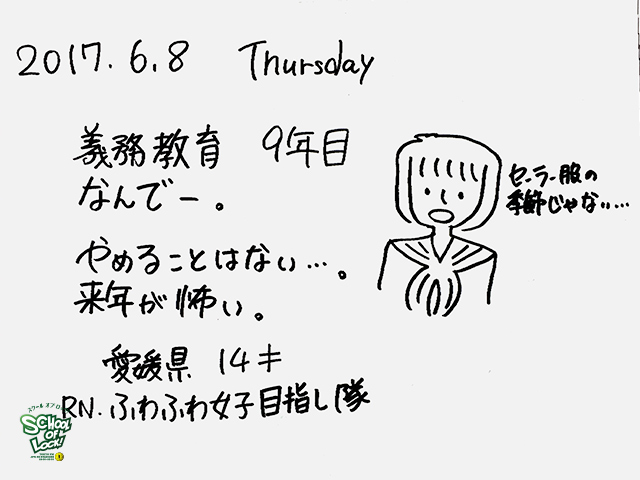 2017.6.8 Thursday
義務教育 9年目
なんでー。
やめることはない…。
来年が怖い。
セーラー服の
季節じゃない…
愛媛県 14才
RN.ふわふわ女子目指し隊
SCHOOL
OF
LOCK!